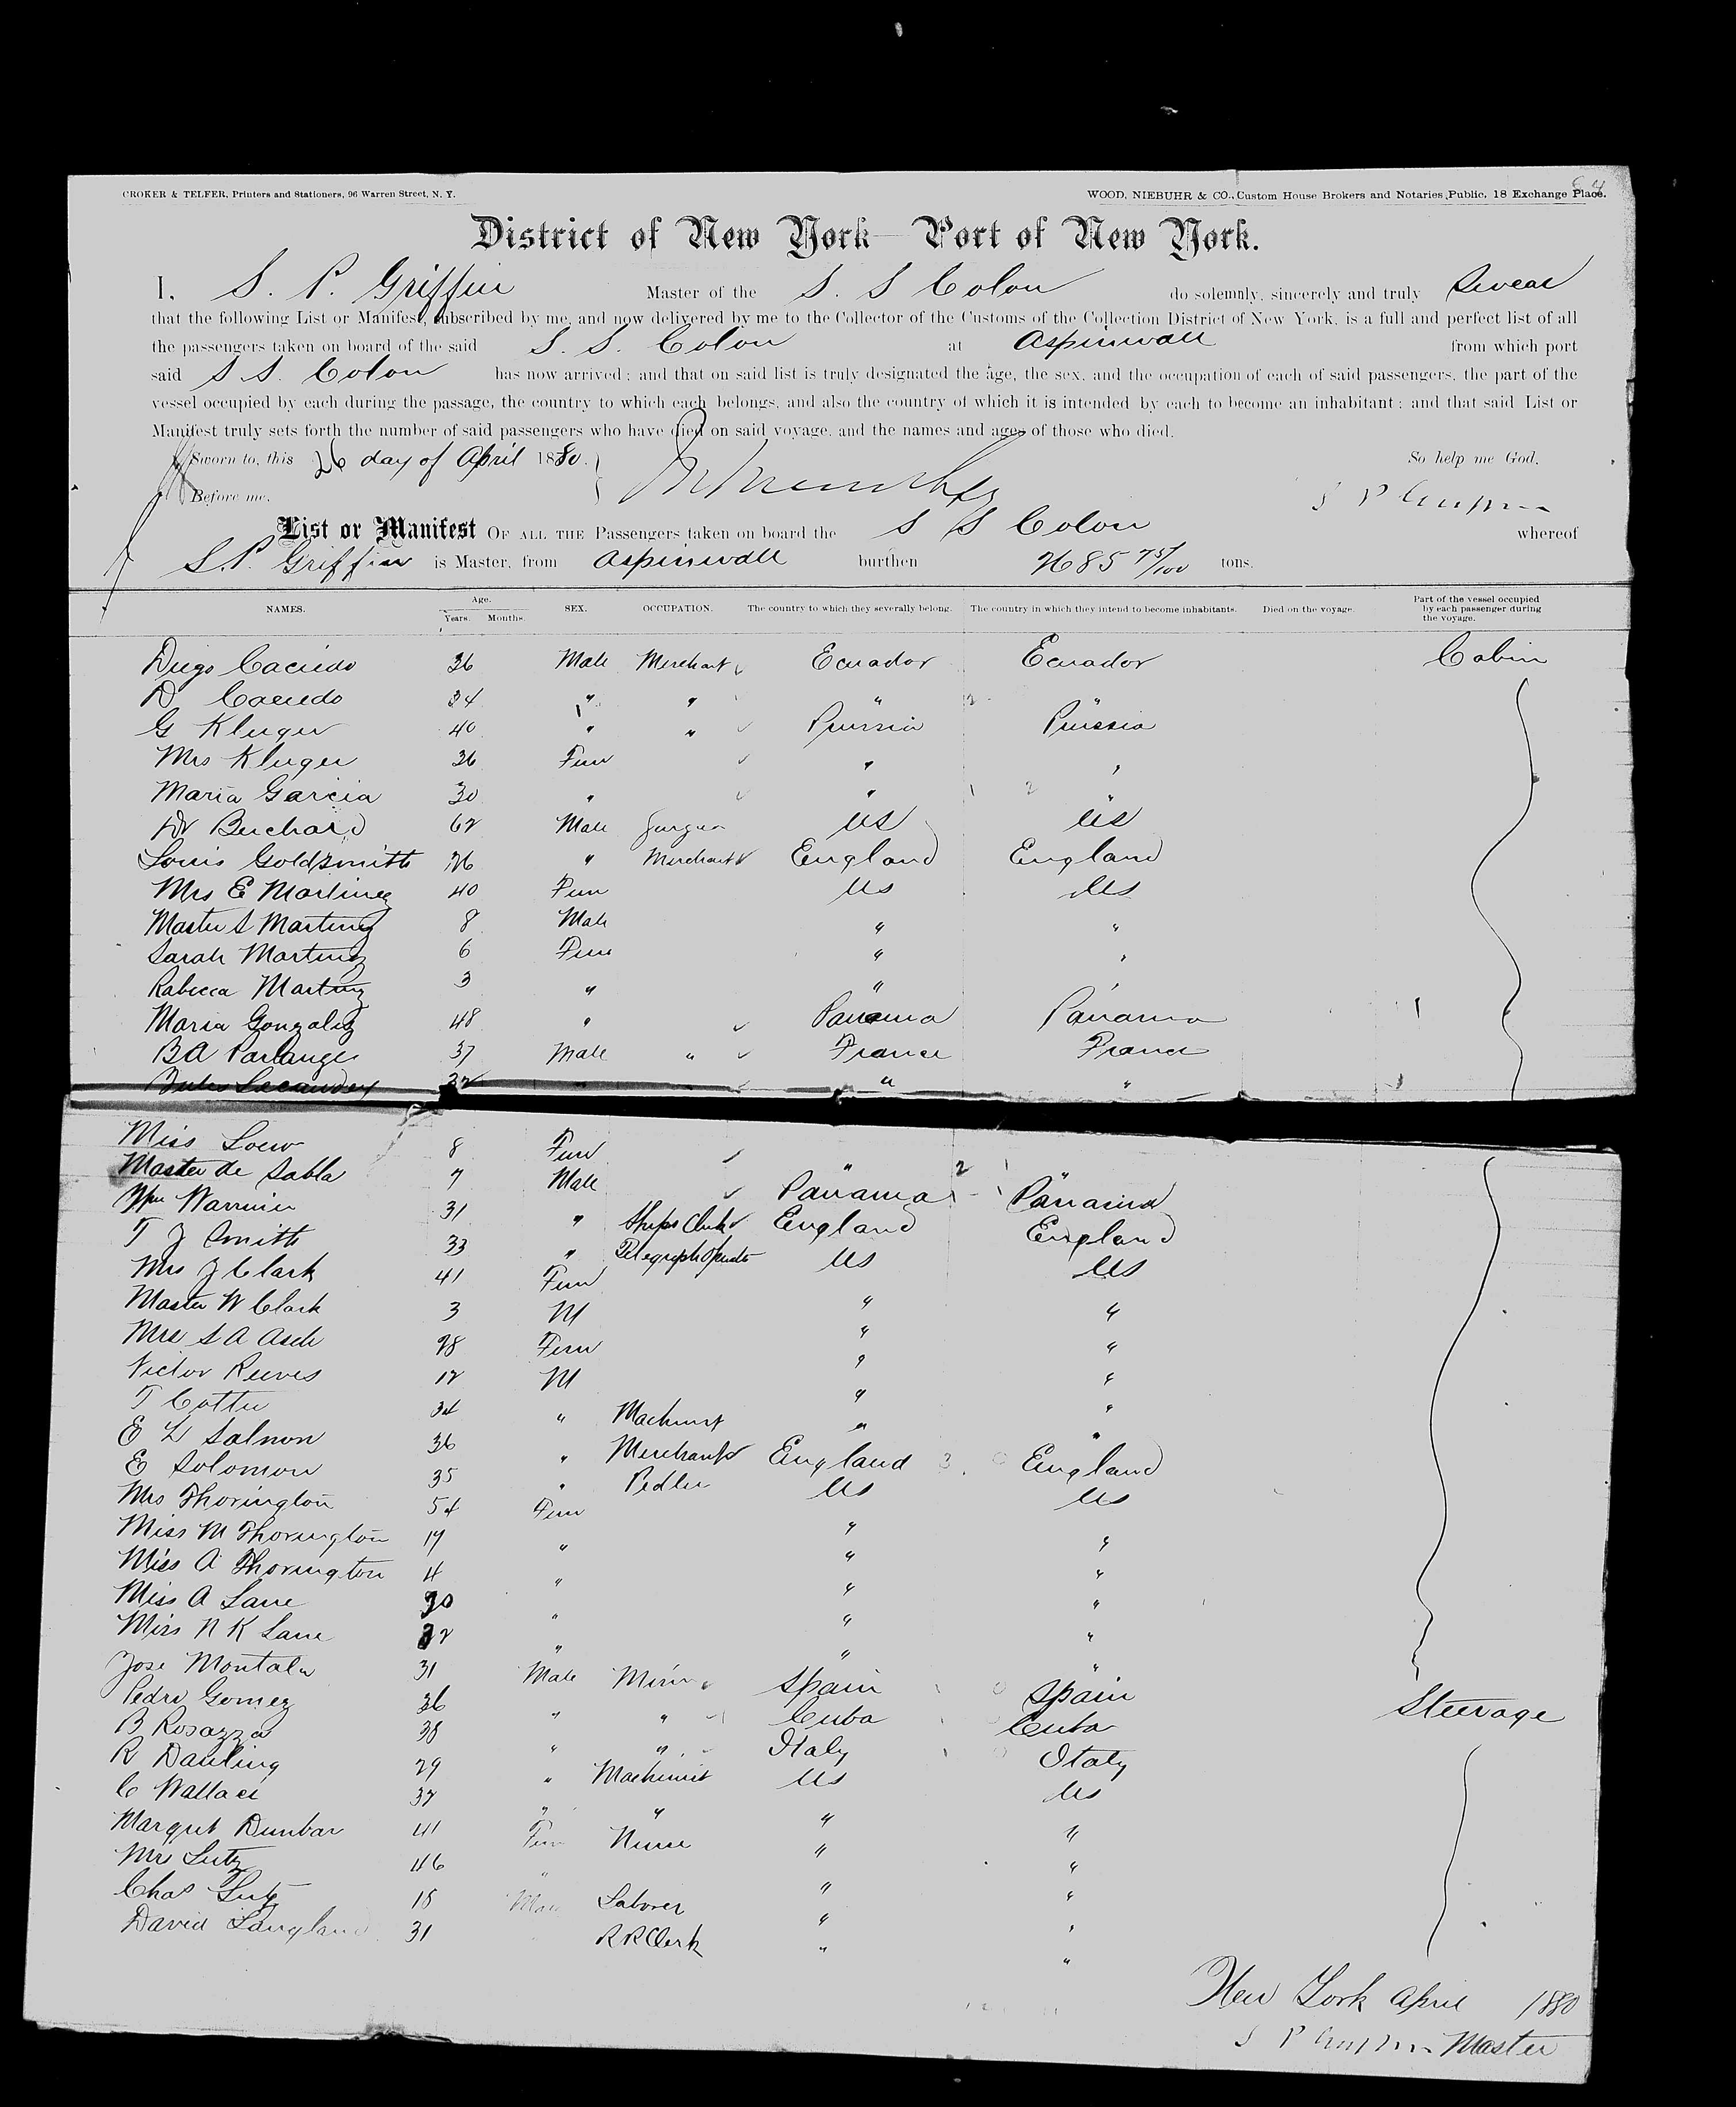 CROKER & TELFER, Printers and Stationers, 96 Warren Street, N. Y.
WOOD, NIEBUHR & CO., Custom House Brokers and Notaries Public, 18 Exchange Place.
District of New York—Port of New York.
I, S. P. Griffin Master of the S. S Colon do solemnly, sincerely and truly Swear
that the following List or Manifest, subscribed by me, and now delivered by me to the Collector of the Customs of the Collection District of New York, is a full and perfect list of all
the passengers taken on board of the said S. S. Colon at Aspinwall from which port
said S S. Colon has now arrived; and that on said list is truly designated the age, the sex, and the occupation of each of said passengers, the part of the
vessel occupied by each during the passage, the country to which each belongs, and also the country of which it is intended by each to become an inhabitant; and that said List or
Manifest truly sets forth the number of said passengers who have died on said voyage, and the names and ages of those who died.
Sworn to, this 26 day of April 1880. So help me God,
Before me, S P Griffin
List or Manifest OF ALL THE Passengers taken on board the S S Colon whereof
S. P. Griffin is Master, from Aspinwall burthen 2685 75/100 tons.
NAMES. Age. Years. Months. SEX. OCCUPATION. The country to which they severally belong. The country in which they intend to become inhabitants. Died on the voyage. Part of the vessel occupied by each passenger during the voyage.
Diego Caciedo 36 Male Merchant Ecuador Ecuador Cabin
D Caciedo 34 " " " "
G Kluger 40 " " Prussia Prussia
Mrs Kluger 36 Fem " "
Maria Garcia 30 " " "
Dr Burchard 62 Male US US
Louis Goldsmith 26 " Merchant England England
Mrs E Martinez 40 Fem US US
Master S Martinez 8 Male " "
Sarah Martinez 6 Fem " "
Rabecca Martinez 3 " " "
Maria Gonzalez 48 " Panama Panama
BA Parlange 37 Male " France France
Jules 32 " " "
Miss Loew 8 Fem " "
Master de Sabla 7 Male Panama Panama
Wm Warrier 31 " Ships Clerk England England
T J Smith 33 " Telegraph Operator US US
Mrs J Clark 41 Fem " "
Master W Clark 3 M " "
Mrs S A Asch 28 Fem " "
Victor Reeves 12 M " "
T Cotter 34 " Machinist " "
E L Salmon 36 " Merchant England England
E Solomon 35 " Pedler US US
Mrs Thorington 54 Fem " "
Miss M Thorington 17 " " "
Miss A Thorington 4 " " "
Miss A Lane 30 " " "
Miss N K Lane 32 " " "
Jose Montalv 31 Male Miner Spain Spain Steerage
Pedro Gomez 36 " " Cuba Cuba
B Rosazza 38 " " Italy Italy
R Dauling 29 " Machinist US US
C Wallace 37 " " " "
Margret Dunbar 41 Fem Nurse " "
Mrs Lutz 46 " " "
Chas Lutz 18 Male Laborer " "
David Langland 31 R R Clerk " "
New York April 1880
S P Griffin Master